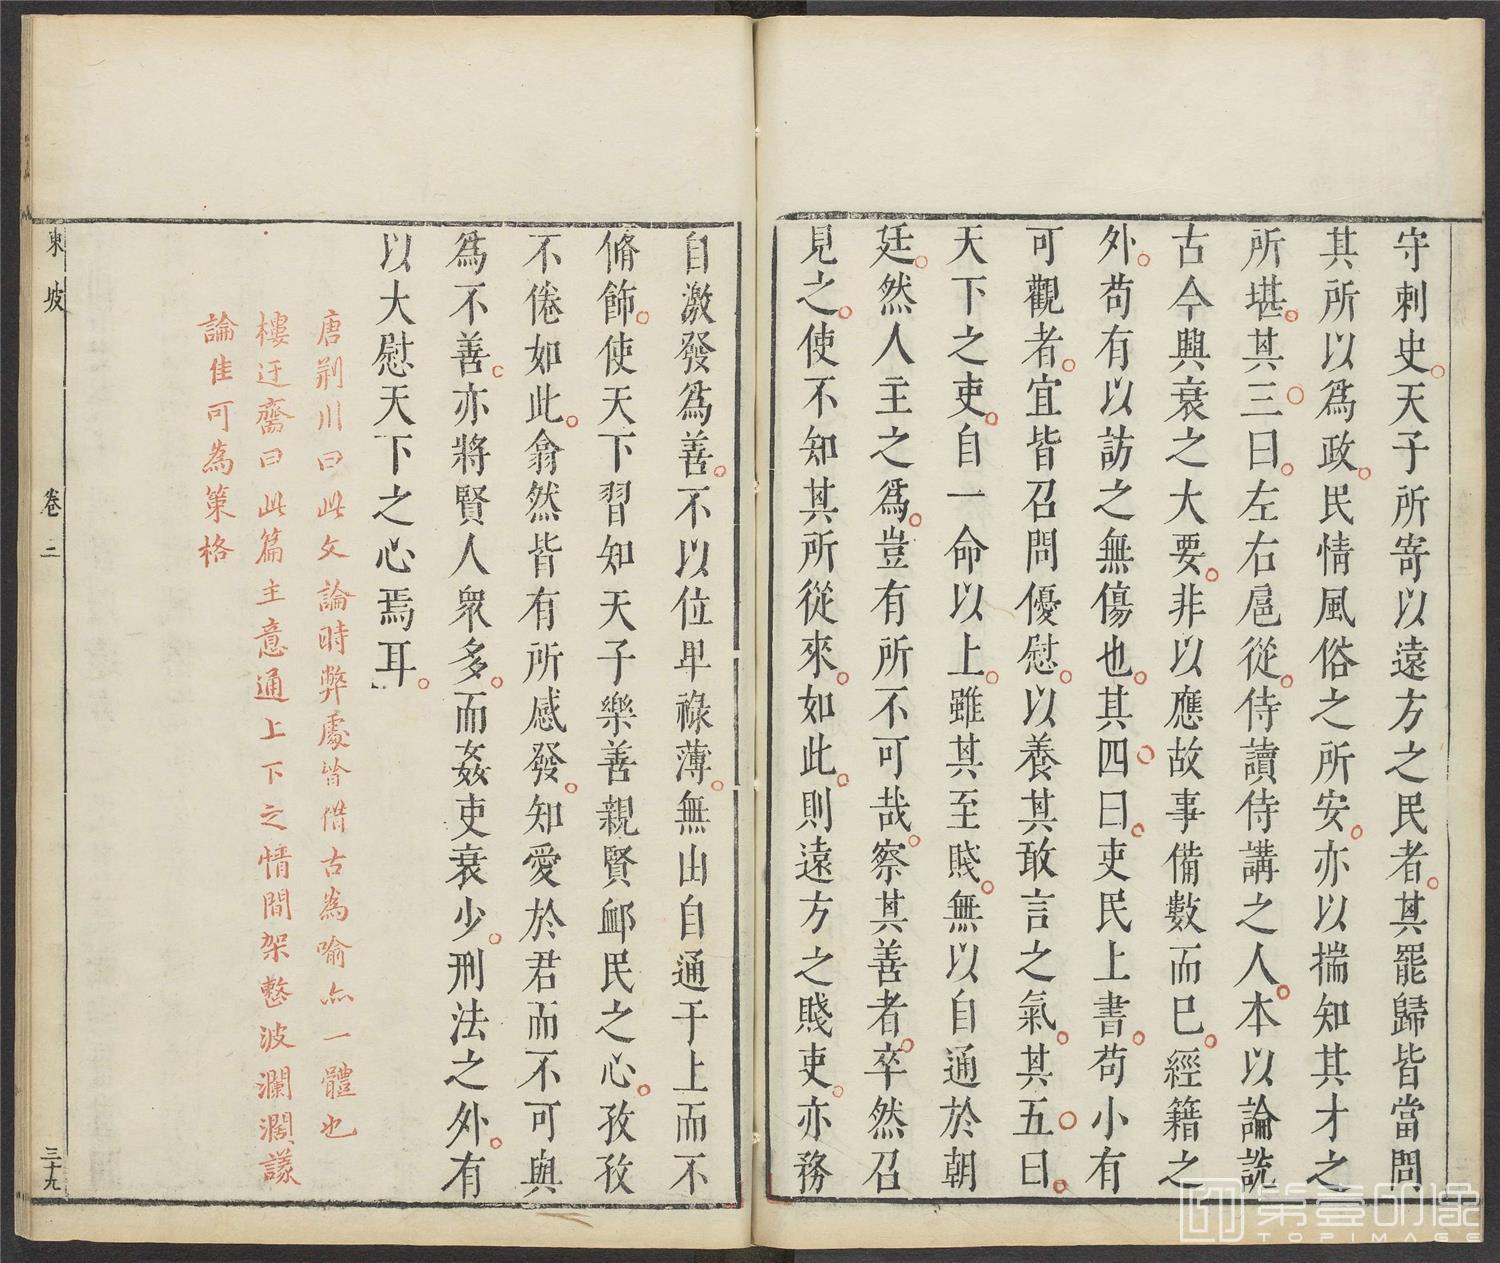 守刺史。天子所寄以遠方之民者。其罷歸皆當問
其所以爲政。民情風俗之所安。亦以揣知其才之
所堪。其三曰。左右扈從。侍讀侍講之人。本以論說
古今興衰之大要。非以應故事備數而已。經籍之
外。苟有以訪之無傷也。其四曰。吏民上書。苟小有
可觀者。宜皆召問優慰。以養其敢言之氣。其五曰。
天下之吏。自一命以上。雖其至賤。無以自通於朝
廷。然人主之爲。豈有所不可哉。察其善者。卒然召
見之。使不知其所從來。如此。則遠方之賤吏。亦務
自激發爲善。不以位卑祿薄。無由自通于上而不
脩飾。使天下習知天子樂善親賢卹民之心。孜孜
不倦如此。翕然皆有所感發。知愛於君而不可與
爲不善。亦將賢人衆多。而姦吏衰少。刑法之外。有
以大慰天下之心焉耳。
唐荊川曰此文論時弊處皆借古為喻亦一體也
樓迂齋曰此篇主意通上下之情間架整波瀾濶議
論佳可為策格
東坡
卷二
三十九
第壹印像
TOPIMAGE